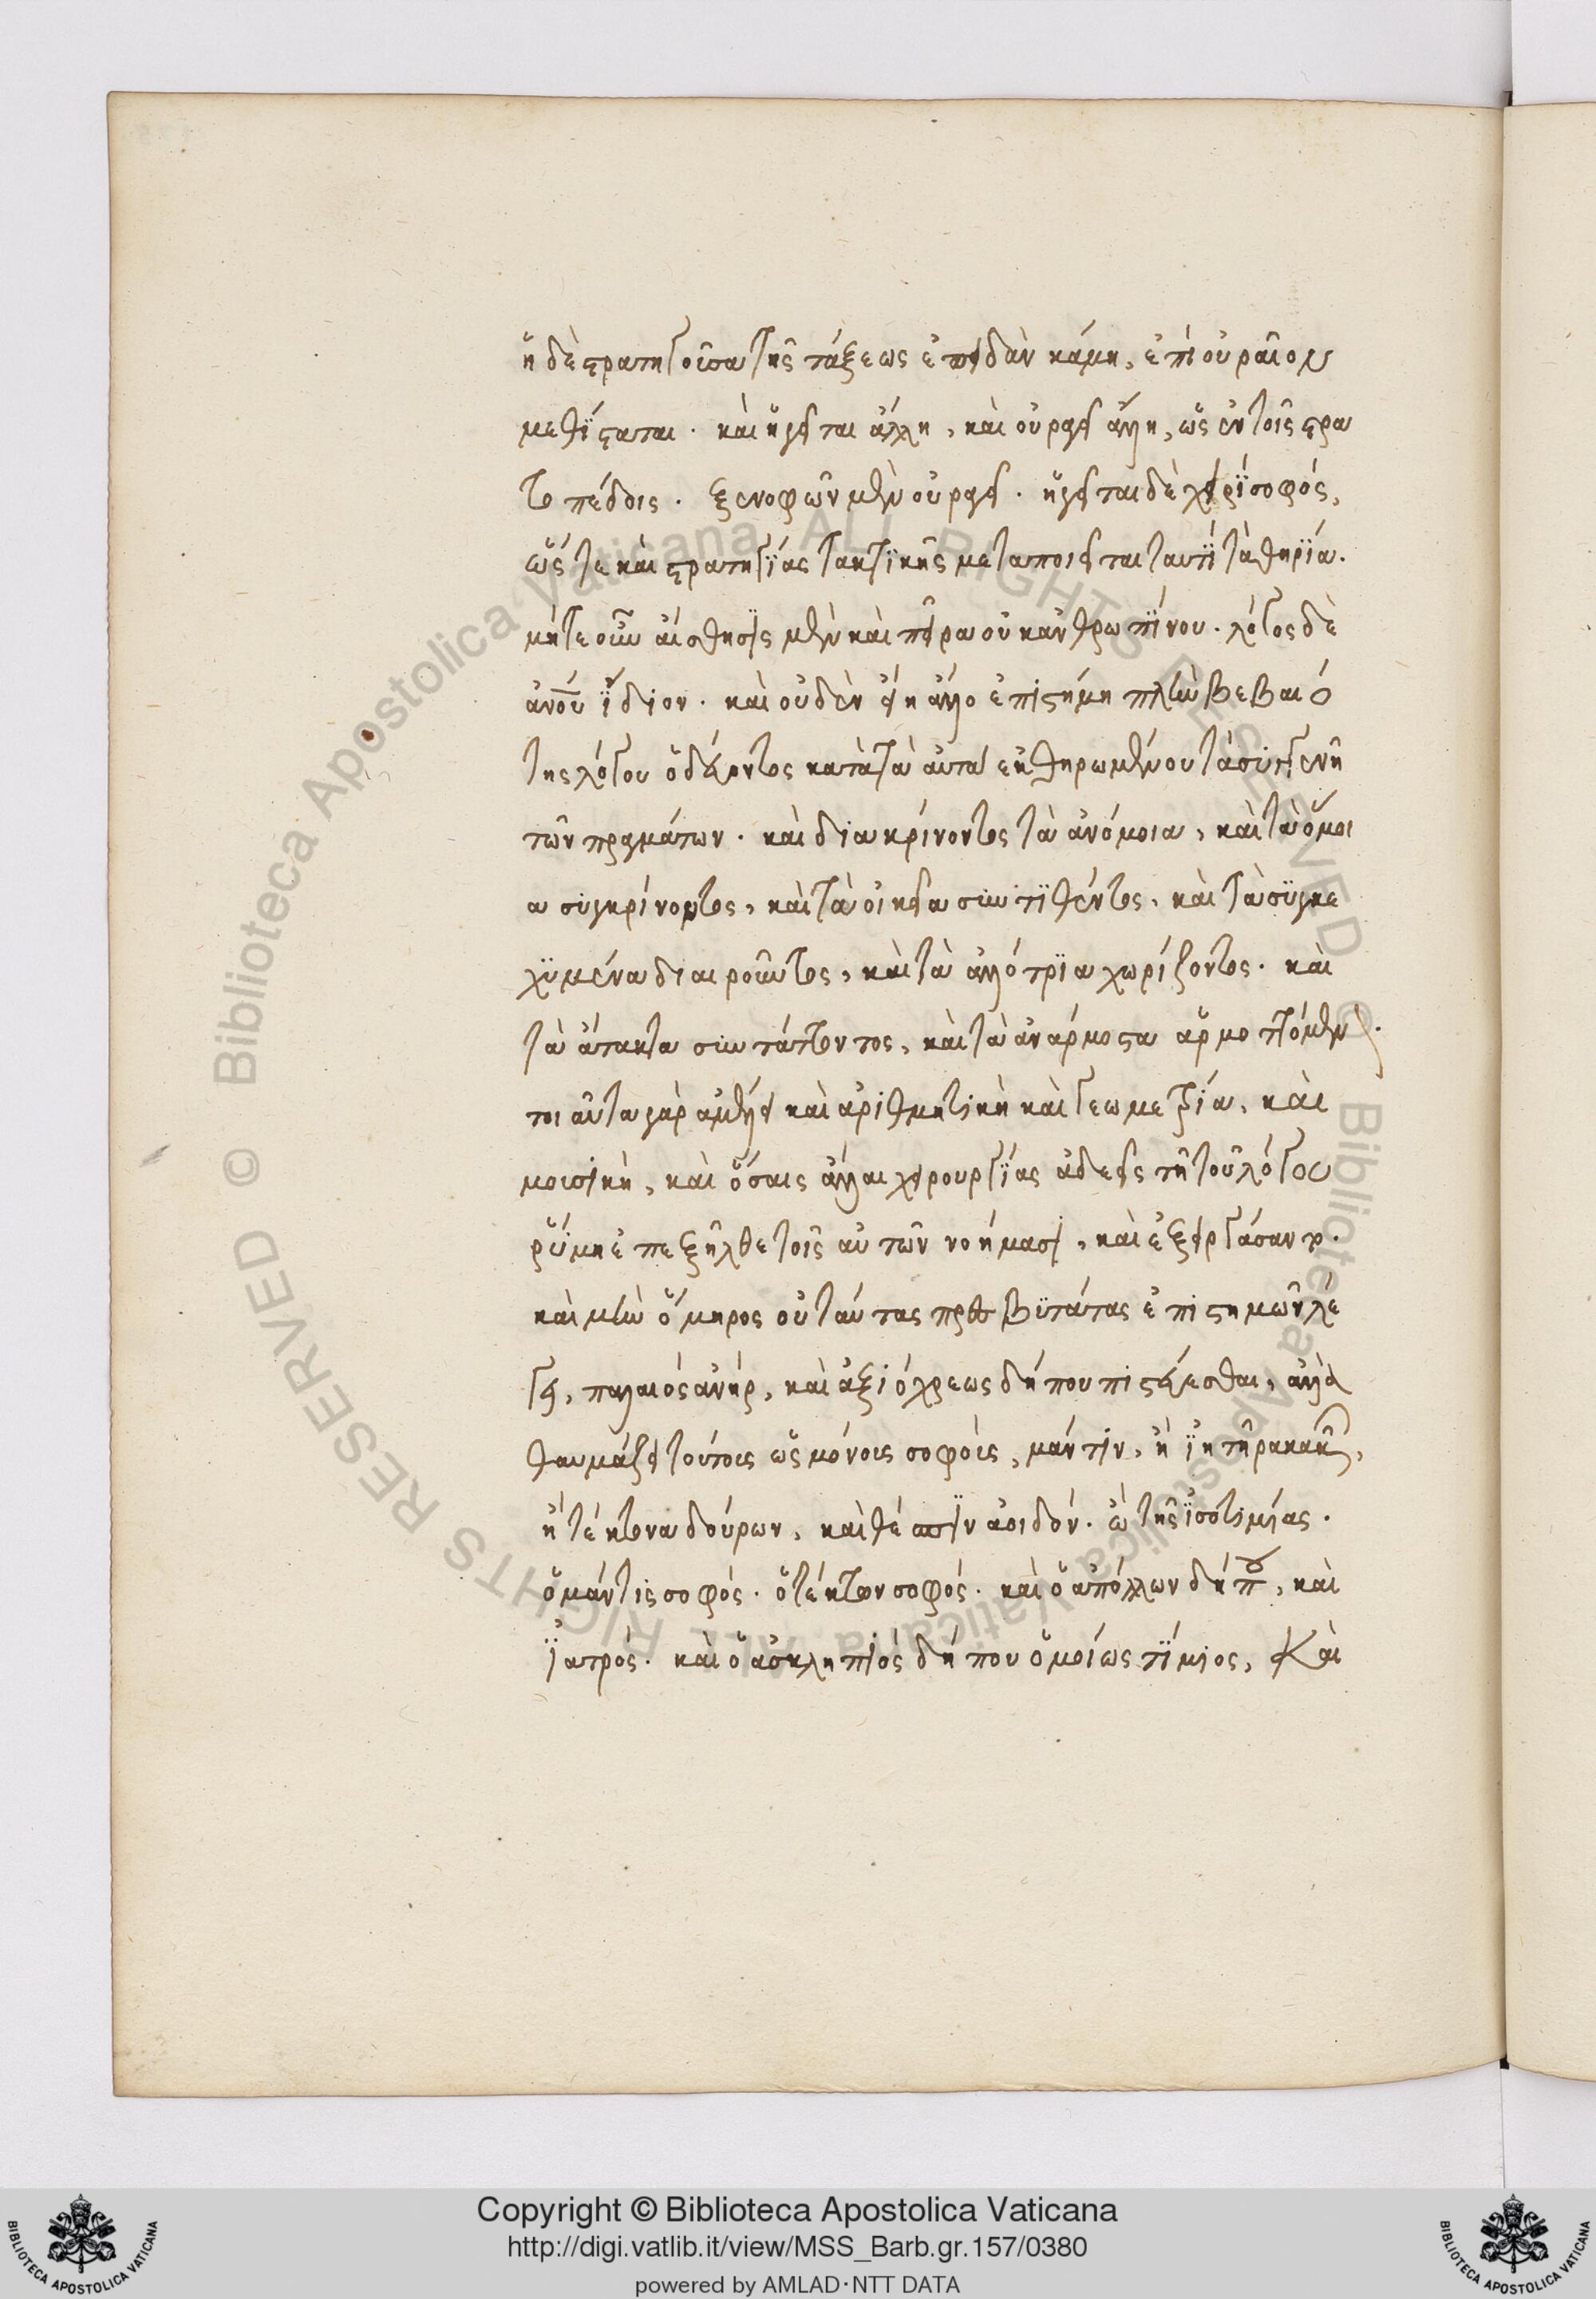 ἡ δὲ στρατηγοῦσα τῆς τάξεως ἐπειδὰν κάμῃ, ἐπὶ οὐραῖον
μεθίσταται. καὶ ἡγεῖται ἄλλη, καὶ οὐραγεῖ ἄλλη, ὡς ἐν τοῖς στρα
τοπέδοις. ξενοφῶν μὲν οὐραγεῖ. ἡγεῖται δὲ χειρίσοφος,
ὥς τε καὶ στρατηγίας τακτικῆς μεταποιεῖται ταυτὶ τὰ θηρία.
μήτε οὖν αἴσθησις μὲν καὶ πεῖρα οὐκ ἀνθρωπίνου. λόγος δὲ
ἀνοῦ ἴδιον. καὶ οὐδὲν εἴη ἄλλο ἐπιστήμη πλὴν βεβαιό
της λόγου ὁδεύοντος κατὰ τὰ αὐτὰ ἐκθηρωμένου τὰ συγγενῆ
τῶν πραγμάτων. καὶ διακρίνοντος τὰ ἀνόμοια, καὶ τὰ ὅμοι
α συγκρίνοντος, καὶ τὰ οἰκεῖα συντιθέντος, καὶ τὰ συγκε
χυμένα διαιροῦντος, καὶ τὰ ἀλλότρια χωρίζοντος. καὶ
τὰ ἄτακτα συντάττοντος, καὶ τὰ ἀνάρμοστα ἁρμοττομεν
τοιαῦτα γὰρ ἀμέλει καὶ ἀριθμητικὴ καὶ γεωμετρία, καὶ
μουσικὴ, καὶ ὅσαις ἄλλαι χειρουργίας ἀδεεῖς τῇ τοῦ λόγου
ῥύμῃ ἐπεξῆλθε τοῖς αὐτῶν νοήμασι, καὶ ἐξειργάσαντο.
καὶ μὴν ὅμηρος οὐ ταύτας πρεσβυτάτας ἐπιστημῶν λέ
γει, παλαιὸς ἀνήρ, καὶ ἀξιόχρεως δήπου πιστεύεσθαι, ἀλλὰ
θαυμάζει τούτους ὡς μόνους σοφοὺς, μάντιν, ἢ ἰητῆρα κακῶν,
ἢ τέκτονα δούρων, καὶ θέσπιν ἀοιδόν. ὢ τῆς ἰσοτιμίας.
ὁ μάντις σοφός. ὁ τέκτων σοφός. καὶ ὁ ἀπόλλων δήπου, καὶ
ἰατρός. καὶ ὁ ἀσκληπιός δήπου ὁμοίως τίμιος, Καὶ
Copyright © Biblioteca Apostolica Vaticana
http://digi.vatlib.it/view/MSS_Barb.gr.157/0380
powered by AMLAD·NTT DATA